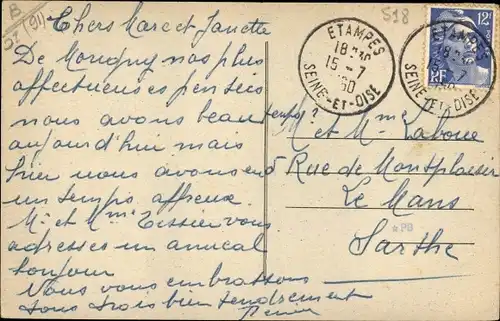 B
DZ (91)
518
Chers Marc et Janette
De Morigny nos plus
affectueuses pensées
nous avons beau temps
aujourd'hui mais
hier nous avons eu
un temps affreux.
Mr et Mme Tessier vous
adresses un amical
bonjour
Nous vous embrassons
tous trois bien tendrement
ETAMPES
18 H30
15-7
SEINE-ET-OISE
ETAMPES
18 H30
SEINE-ET-OISE
12F
RF
M et Mme Laboue
5 Rue de Montplaisir
Le Mans
*PB
Sarthe